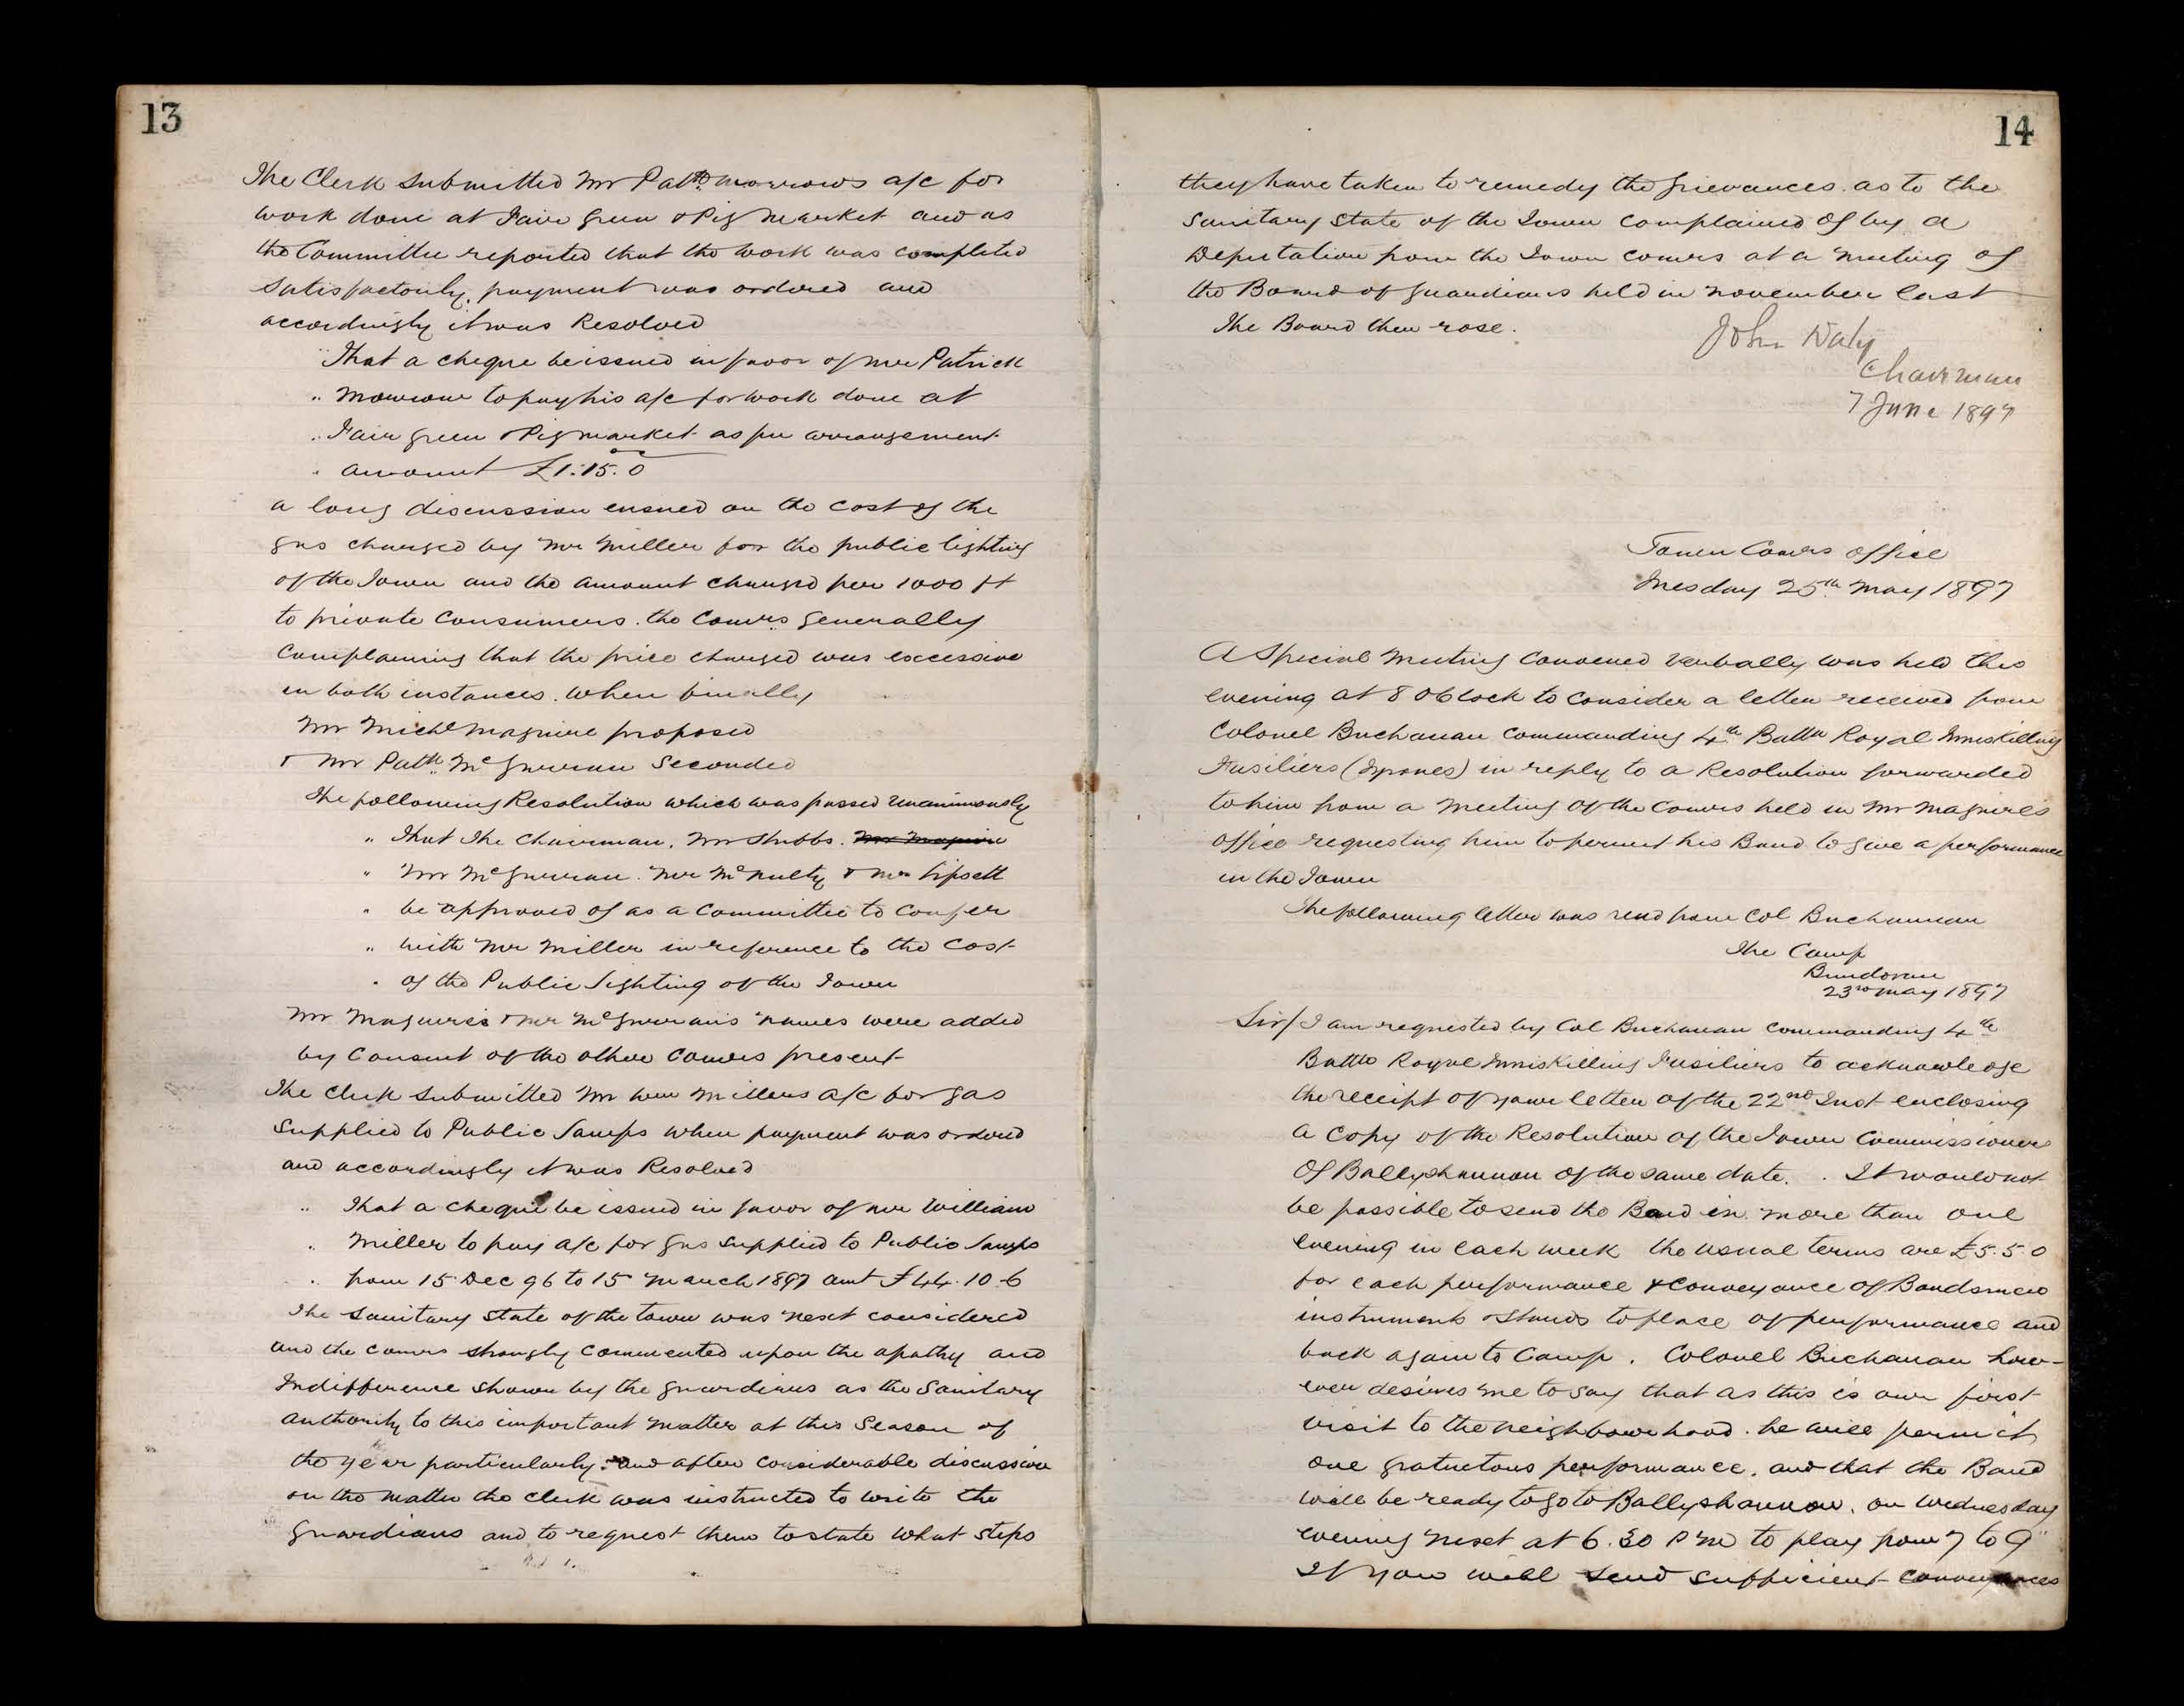 13
The Clerk submitted Mr Patk Morrows a/c for
work done at Fair Green & Pig Market and as
the Committee reported that the work was completed
satisfactorily, payment was ordered and
accordingly it was Resolved
" That a cheque be issued in favor of Mr Patrick
" Morrow to pay his a/c for work done at
" Fair Green & Pig market as per arrangement
" amount £1:15:0
a long discussion ensued on the cost of the
gas charged by Mr Miller for the public lighting
of the Town and the amount charged per 1000 ft
to private consumers. the Comrs generally
complaining that the price charged was excessive
in both instances. When finally
Mr Michl Maguire proposed
& Mr Patk McGurran Seconded
The following Resolution which was passed unanimously
" That The Chairman, Mr Stubbs. Mr Maguire
" Mr McGurran. Mr McNulty & Mr Lipsett
" be approved of as a Committee to confer
" with Mr Miller in reference to the Cost
" of the Public Lighting of the Town
Mr Maguires & Mr McGurrans names were added
by Consent of the other Comrs present
The Clerk submitted Mr Wm Millers a/c for gas
supplied to Public Lamps when payment was ordered
and accordingly it was Resolved
" That a cheque be issued in favor of Mr William
" Miller to pay a/c for gas supplied to Public Lamps
" from 15 Dec 96 to 15 March 1897 amt £44.10.6
The sanitary state of the town was next considered
and the Comrs strongly commented upon the apathy and
Indifference shown by the guardians as the Sanitary
authority to this important matter at this Season of
the year particularly. and after considerable discussion
on the matter the clerk was instructed to write the
guardians and to request them to state what steps
14
they have taken to remedy the grievances as to the
sanitary state of the Town complained of by a
Deputation from the Town Comrs at a meeting of
the Board of Guardians held in November last
The Board then rose.
John Daly
Chairman
7 June 1897
Town Comrs Office
Tuesday 25th May 1897
A Special Meeting convened verbally was held this
evening at 8 OClock to consider a letter received from
Colonel Buchanan Commanding 4th Battn Royal Inniskilling
Fusiliers (Tyrones) in reply to a Resolution forwarded
to him from a meeting of the Comrs held in Mr Maguires
office requesting him to permit his Band to give a performance
in the Town
The following letter was read from Col Buchannan
The Camp
Bundoran
23rd May 1897
Sir/ I am requested by Col Buchanan commanding 4th
Battn Royal Inniskilling Fusiliers to acknowledge
the receipt of your letter of the 22nd Inst enclosing
a copy of the Resolution of the Town Commissioners
Of Ballyshannon of the same date. . It would not
be possible to send the Band in more than one
evening in each week the usual terms are £5.5.0
for each performance & conveyance of Bandsmen
instruments & stands to place of performance and
back again to Camp. Colonel Buchanan how-
ever desires me to say that as this is our first
visit to the neighbourhood. he will permit
one gratuitous performance. and that the Band
will be ready to go to Ballyshannon. on Wednesday
evening next at 6.30 PM to play from 7 to 9"
If you will send sufficient conveyances